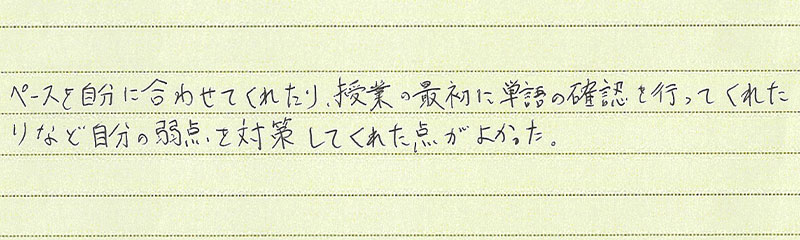 ペースを自分に合わせてくれたり、授業の最初に単語の確認を行ってくれた
りなど自分の弱点を対策してくれた点がよかった。